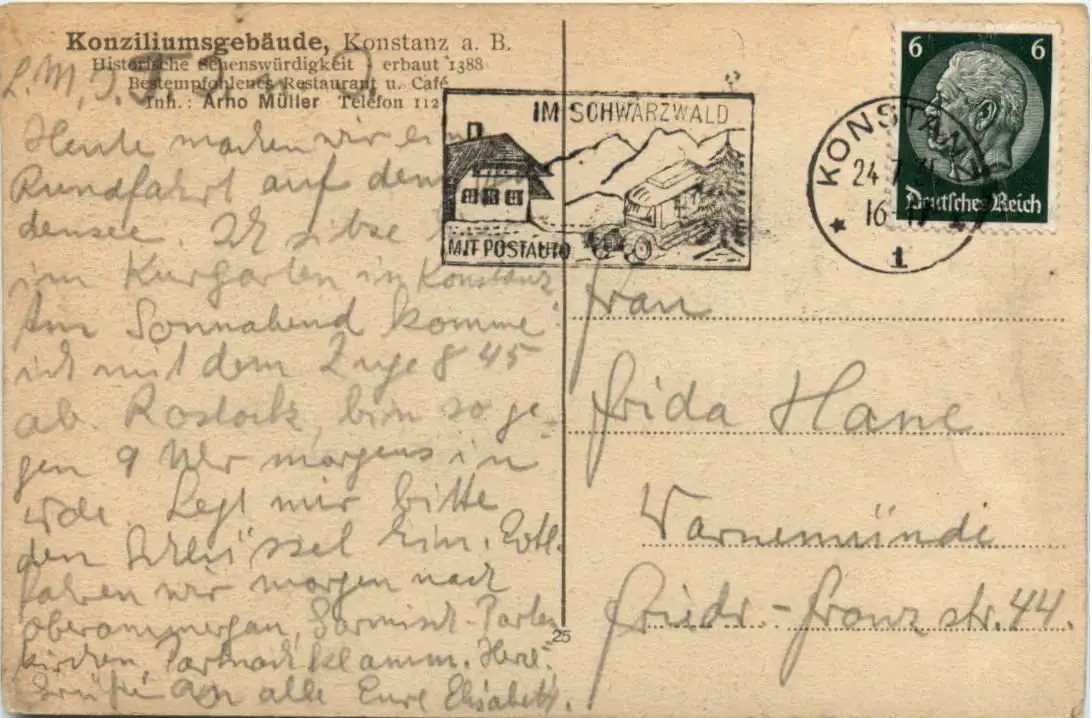 Konziliumsgebäude, Konstanz a. B.
Historische Sehenswürdigkeit erbaut 1388
Bestempfohlenes Restaurant u. Café
Inh.: Arno Müller Telefon 112
L. M, J.
Heute machen wir ein
Rundfahrt auf dem
densee. Ich sitze
im Kurgarten in Konstanz
Am Sonnabend komme
ich mit dem Zuge 8 45
ab Rostock, bin so ge-
gen 9 Uhr morgens in
Wde. Legt mir bitte
den Schlüssel hin. Evtl.
fahren wir morgen nach
Oberammergau, Garmisch-Parten
kirchen, Partnachklamm. Herzl.
Grüße an alle Eure Elisabeth.
25
IM SCHWARZWALD
MIT POSTAUTO
KONSTANZ
24.7.
16-17
1
6 6
Deutsches Reich
Frau
Frida Hane
Warnemünde
Friedr.-Franz str. 44.